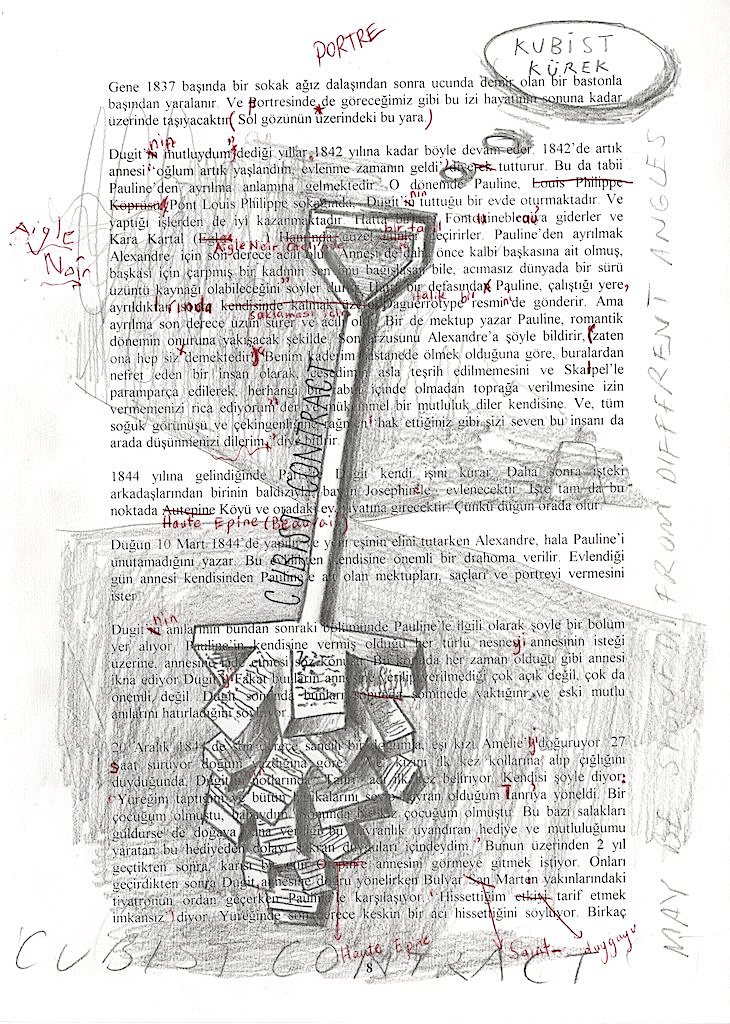 PORTRE
KUBİST
KÜREK
Gene 1837 başında bir sokak ağız dalaşından sonra ucunda demir olan bir bastonla
başından yaralanır. Ve Portresinde de göreceğimiz gibi bu izi hayatının sonuna kadar
üzerinde taşıyacaktır( Sol gözünün üzerindeki bu yara.)
nin
Dugit'in mutluydum" dediği yıllar 1842 yılına kadar böyle devam eder. 1842'de artık
annesi "oğlum artık yaşlandım, evlenme zamanın geldi" diyerek tutturur. Bu da tabii
Pauline'den ayrılma anlamına gelmektedir. O dönemde Pauline, Louis Philippe
nin
Köprüsü Pont Louis Philippe sokağında, Dugit'in tuttuğu bir evde oturmaktadır. Ve
yaptığı işlerden de iyi kazanmaktadır. Hatta Fontainebleau'ya giderler ve
bir tatil
Kara Kartal güzel geçirirler. Pauline'den ayrılmak
Aigle Noir
Alexandre için son derece acılı olur. Annesi de daha önce kalbi başkasına ait olmuş,
başkası için çarpmış bir kadının sen onu bağışlasan bile, acımasız dünyada bir sürü
üzüntü kaynağı olabileceğini söyler durur. Hatta bir defasında Pauline, çalıştığı yere,
ayrıldıkları kendisinde kalmak üzere Daguerrotype resmini de gönderir. Ama
saklaması için
ayrılma son derece uzun sürer ve acılı olur. Bir de mektup yazar Pauline, romantik
dönemin onuruna yakışacak şekilde. Son arzusunu Alexandre'a şöyle bildirir, (zaten
ona hep siz demektedir) "Benim kaderim hastanede ölmek olduğuna göre, buralardan
nefret eden bir insan olarak cesedimin asla teşrih edilmemesini ve Skalpel'le
paramparça edilerek, herhangi tabut içinde olmadan toprağa verilmesine izin
vermemenizi rica ediyorum" der mükemmel bir mutluluk diler kendisine. Ve, tüm
soğuk görünüşü ve çekingenliğine rağmen "hak ettiğiniz gibi sizi seven bu insanı da
arada düşünmenizi dilerim," diye bitirir.
1844 yılına gelindiğinde Dugit kendi işini kurar. Daha sonra işteki
arkadaşlarından birinin baldızıyla, bayan Josephine'le evlenecektir. İşte tam da bu
noktada Autepine Köyü ve oradaki ev hayatına girecektir. Çünkü düğün orada olur.
Haute Epine (Beauvais)
Düğün 10 Mart 1844'de yapılır ve yeni eşinin elini tutarken Alexandre, hala Pauline'i
unutamadığını yazar. Bu kendisine önemli bir drahoma verilir. Evlendiği
gün annesi kendisinden Pauline'e ait olan mektupları, saçları ve portreyi vermesini
ister.
nin
Dugit'in anılarının bundan sonraki bölümünde Pauline'le ilgili olarak şöyle bir bölüm
yer alıyor. Pauline'in kendisine vermiş olduğu her türlü nesneyi annesinin isteği
üzerine, annesine iade etmesi söz konusu. Bu konuda her zaman olduğu gibi annesi
ikna ediyor Dugit'yi. Fakat bunların annesine verilip verilmediği çok açık değil, çok da
önemli değil. Dugit sonunda bunları şöminede yaktığını ve eski mutlu
anılarını hatırladığını söylüyor.
20 Aralık 1844'de son derece sancılı bir doğumla, eşi kızı Amelie'yi doğuruyor. 27
Saat sürüyor doğum yazdığına göre. Ve kızını ilk kez kollarına alıp çığlığını
duyduğunda, Dugit notlarında Tanrı adı ilk kez beliriyor. Kendisi şöyle diyor:
"Yüreğim taptığım ve bütün hayran olduğum Tanrıya yöneldi. Bir
çocuğum olmuştu, babaydım, çocuğum olmuştu. Bu bazı salakları
güldürse de doğaya bu hayranlık uyandıran hediye ve mutluluğumu
yaratan bu hediyeden dolayı şükran duyguları içindeydim." Bunun üzerinden 2 yıl
geçtikten sonra, karısı annesini görmeye gitmek istiyor. Onları
geçirdikten sonra Dugit annesine doğru yönelirken Bulvar San Marten yakınlarındaki
tiyatronun ordan geçerken Pauline'le karşılaşıyor. "Hissettiğim etkiyi tarif etmek
imkansız" diyor. Yüreğinde son derece keskin bir acı hissettiğini söylüyor. Birkaç
Haute Epine
Saint
duyguyu
8
Aigle
Noir
CUBIST CONTRACT
CUBIST CONTRACT
MAY BE SEEN FROM DIFFERENT ANGLES